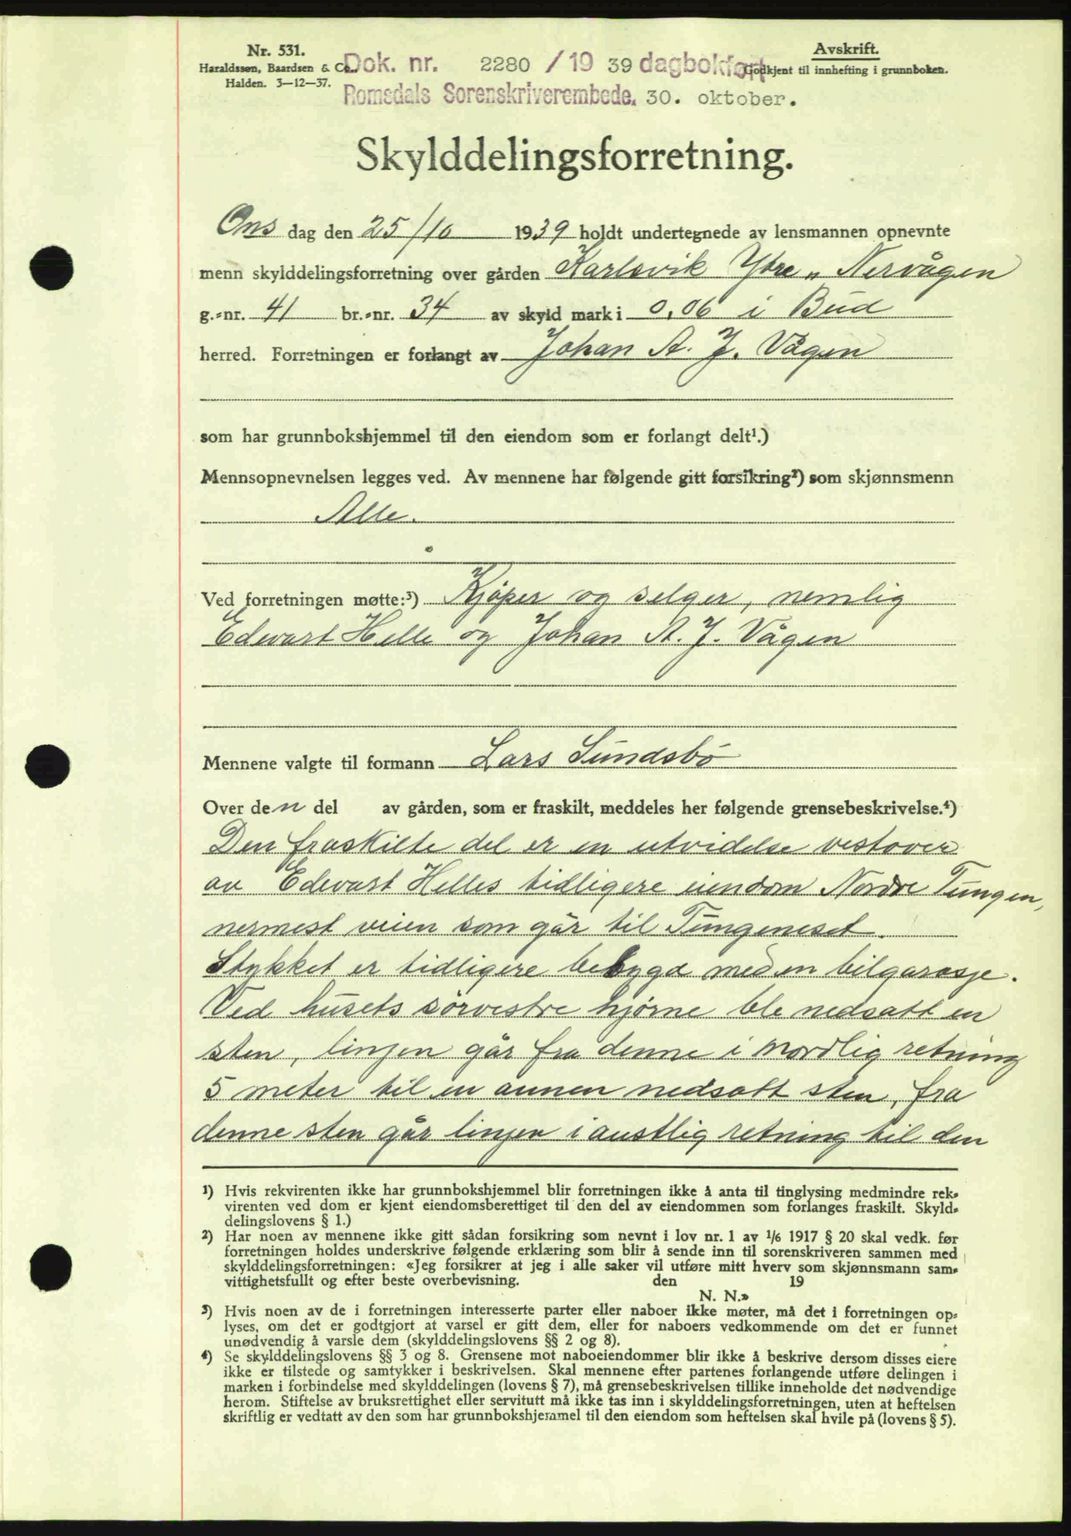 Nr. 531.
Haraldssen, Baardsen & Co.
Halden. 3—12—37.
Avskrift.
Godkjent til innhefting i grunnboken.
Dok. nr. 2280 / 19 39 dagbokført
Romsdals Sorenskriverembede. 30. oktober.
Skylddelingsforretning.
Ons dag den 25/10 1939 holdt undertegnede av lensmannen opnevnte
menn skylddelingsforretning over gården Karlsvik Ytre „ Nervågen
g.-nr. 41 br.-nr. 34 av skyld mark i 0,06 i Bud
herred. Forretningen er forlangt av Johan A. J. Vågen
som har grunnbokshjemmel til den eiendom som er forlangt delt¹.)
Mennsopnevnelsen legges ved. Av mennene har følgende gitt forsikring²) som skjønnsmenn
Alle.
Ved forretningen møtte:³) Kjøper og selger, nemlig
Edevart Helle og Johan A. J. Vågen
Mennene valgte til formann Lars Sundsbø
Over den del av gården, som er fraskilt, meddeles her følgende grensebeskrivelse.⁴)
Den fraskilte del er en utvidelse vestover
av Edevart Helles tidligere eiendom Nordre Tungen,
nermest veien som går til Tungeneset.
Stykket er tidligere bebygd med en bilgarasje.
Ved husets sørvestre hjørne ble nedsatt en
sten, linjen går fra denne i nordlig retning
5 meter til en annen nedsatt sten, fra
denne sten går linjen i austlig retning til den
¹) Hvis rekvirenten ikke har grunnbokshjemmel blir forretningen ikke å anta til tinglysing medmindre rek-
virenten ved dom er kjent eiendomsberettiget til den del av eiendommen som forlanges fraskilt. Skyld-
delingslovens § 1.)
²) Har noen av mennene ikke gitt sådan forsikring som nevnt i lov nr. 1 av 1/6 1917 § 20 skal vedk. før
forretningen holdes underskrive følgende erklæring som blir å sende inn til sorenskriveren sammen med
skylddelingsforretningen: «Jeg forsikrer at jeg i alle saker vil utføre mitt hverv som skjønnsmann sam-
vittighetsfullt og efter beste overbevisning. den 19
N. N.»
³) Hvis noen av de i forretningen interesserte parter eller naboer ikke møter, må det i forretningen op-
lyses, om det er godtgjort at varsel er gitt dem, eller for naboers vedkommende om det er funnet
unødvendig å varsle dem (skylddelingslovens §§ 2 og 8).
⁴) Se skylddelingslovens §§ 3 og 8. Grensene mot naboeiendommer blir ikke å beskrive dersom disses eiere
ikke er tilstede og samtykker i beskrivelsen. Skal mennene efter partenes forlangende utføre delingen i
marken i forbindelse med skylddelingen (lovens § 7), må grensebeskrivelsen tillike inneholde det nødvendige
herom. Stiftelse av bruksrettighet eller servitutt må ikke tas inn i skylddelingsforretningen, uten at heftelsen
skriftlig er vedtatt av den som har grunnbokshjemmel til den eiendom som heftelsen skal hvile på (lovens § 5).